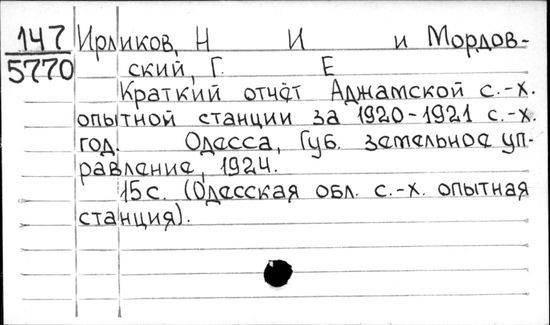 147
5770
Ирликов, Н И и Мордов-
ский, Г. Е
Краткий отчёт Аджамской с.-х.
опытной станции за 1920-1921 с.-х.
год. Одесса, Губ. земельное уп-
равление, 1924.
15 с. (Одесская обл. с.-х. опытная
станция).